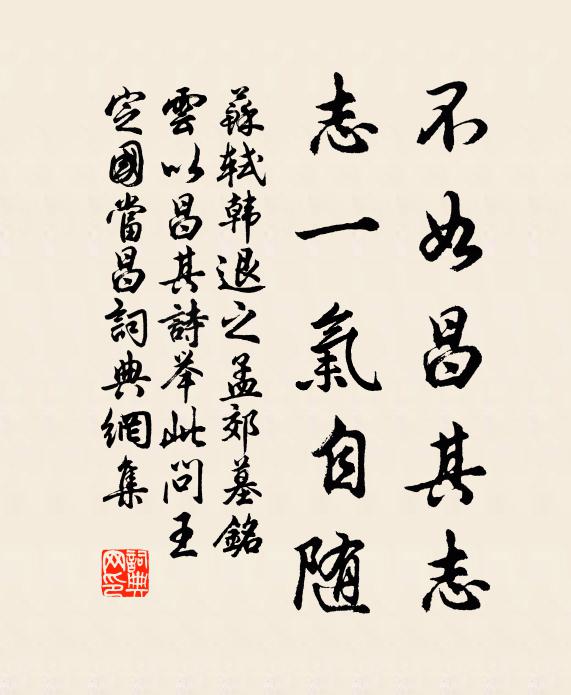 不如昌其志
志一氣自随
蘇轼韩退之孟郊墓銘
雲以昌其詩举此問王
定國當昌詞典網集
詞典网印